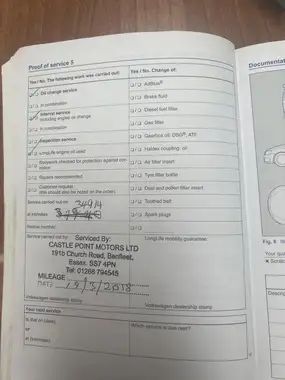 Proof of service 5
Documentat
Yes / No. The following work was carried out:
Yes / No. Change of:
Oil change service
AdBlue®
In combination
Brake fluid
Interval service
including engine oil change
Diesel fuel filter
In combination
Gas filter
Inspection service
Gearbox oil: DSG®, ATF
LongLife engine oil used
Haldex coupling: oil
Bodywork checked for protection against corrosion
Air filter insert
Repairs recommended
Tyre filler bottle
Customer request
Dust and pollen filter insert
Service carried out on:
Toothed belt
at km/miles:
Spark plugs
Invoice number:
Service carried out by:
LongLife mobility guarantee:
Serviced By:
CASTLE POINT MOTORS LTD
191b Church Road, Benfleet,
Essex. SS7 4PN
Tel: 01268 794545
MILEAGE
DATE
Volkswagen dealership stamp
Volkswagen dealership stamp
Your next service
is due on (date):
Which service is due next?
or
at (km/miles):